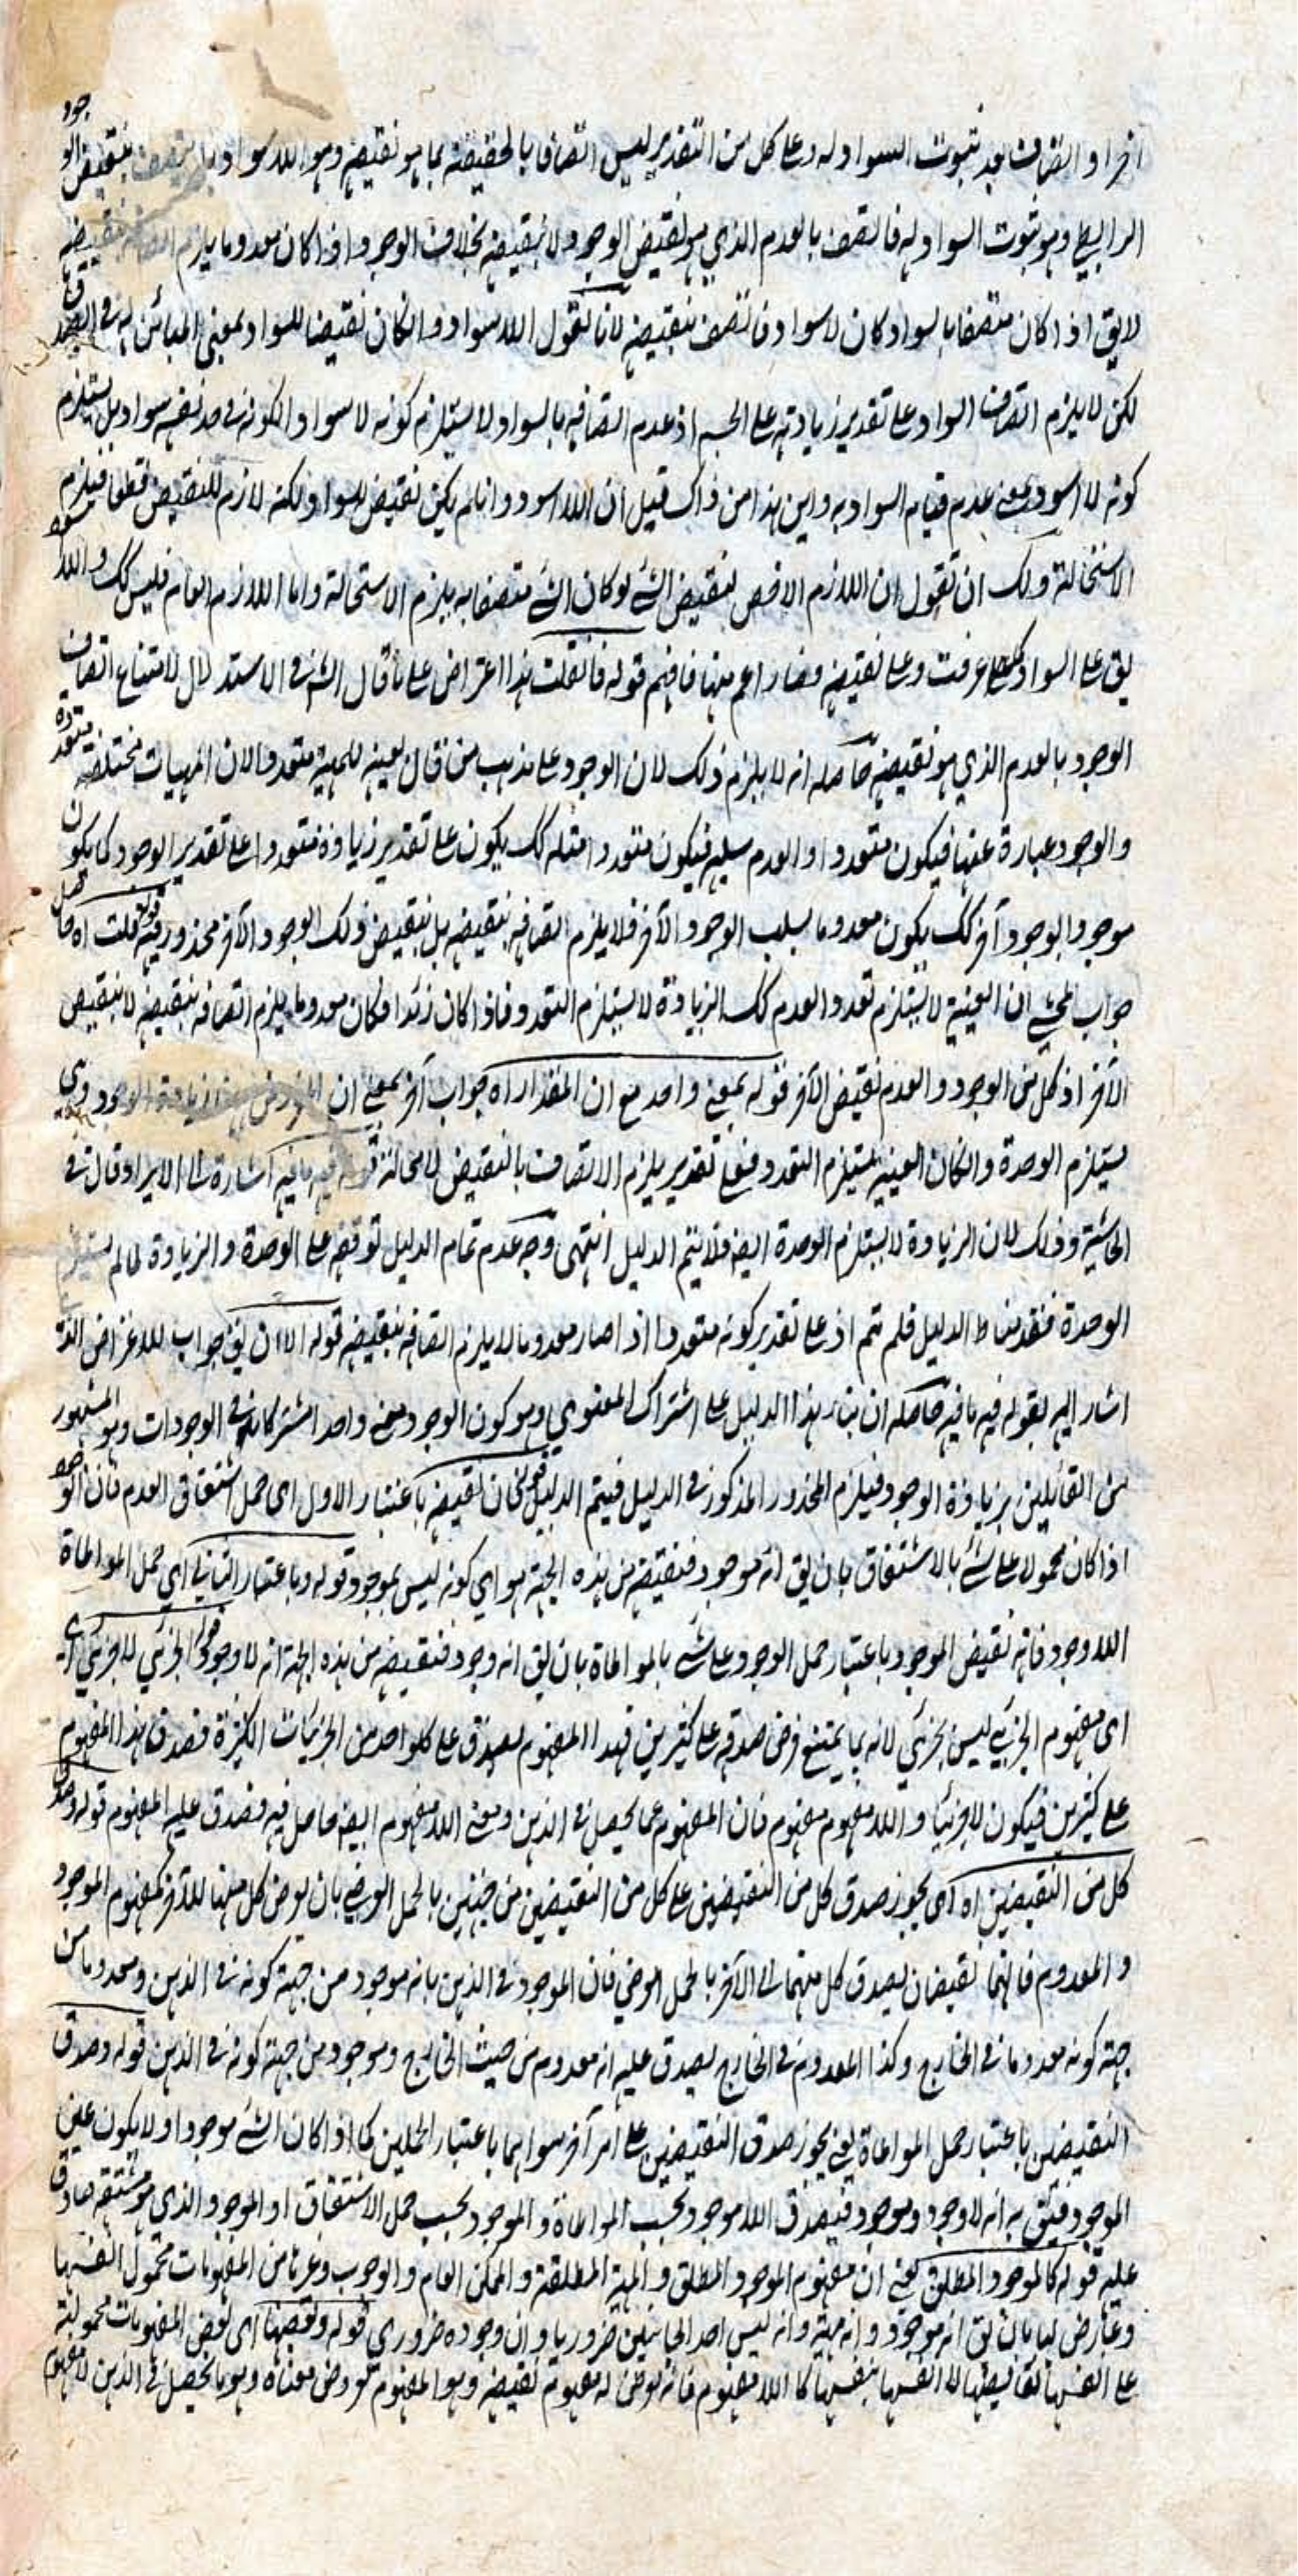 او اتصافه بعد ثبوت السواد له وعلى كل من التقدير ليس اتصافا بالحقيقة بما هو نقيضه وهو اللاسواد بنقيض الو جود
الرابطي وهو ثبوت السواد له فاتصف بالعدم الذي هو نقيض الوجود لا بنقيضه بخلاف الوجود اذا كان معدوما يلزم بنقيضه
لايق اذا كان متصفا بالسواد كان لاسواد فاتصف بنقيضه لانا نقول اللاسواد وانكان نقيضا للسواد بمعنى المبائن له في الصدق
لكن لا يلزم اتصاف السواد على تقدير زيادته على الجسم اذ عدم اتصافه بالسواد لا يستلزم كونه لا سوادا لكونه في حد نفسه سواد بل يستلزم
كونه لا اسود بمعنى عدم قيام السواد به واين هذا من ذاك قيل ان اللااسود وان لم يكن نقيض للسواد ولكنه لازم للنقيض قطعا فيلزم
الاستحالة ولك ان تقول ان اللازم الاخص لنقيض الشئ لو كان الشئ متصفا به يلزم الاستحالة واما اللازم العام فليس كك واللااسود
يق على السواد كما عرفت وعلى نقيضه فصار اعم منها فافهم قوله فانقلت هذا اعتراض على ما قال الش في الاستدلال لامتناع اتصاف
الوجود بالعدم الذي هو نقيضه حاصله انه لا يلزم ذلك لان الوجود على مذهب من قال بعينه للمهية متعدد الان المهيات مختلفة متعددة
والوجود عبارة عنها فيكون متعددا والعدم سلبه فيكون متعددا مثله كك يكون على تقدير زيادة متعددا على تقدير الوجود كما يكون
موجودا لوجود آخر كك يكون معدوما بسلب الوجود الآخر فلا يلزم اتصافه بنقيضه بل بنقيض ذلك الوجود الآخر محذور فيه قوله قلت اه حاصل
جواب المحشي ان العينية لا يستلزم تعدد العدم كك الزيادة لا يستلزم التعدد فاذا كان زئدا فكان معدوما يلزم اتصافه بنقيضه لا بنقيض
الآخر اذ كل من الوجود والعدم نقيض الآخر قوله بمعنى واحد مع ان المقدار اه جواب آخر بمعنى ان زيادة الوجود وهي
يستلزم الوحدة وانكان العينية يستلزم التعدد فعلى تقدير يلزم الاتصاف بالنقيض لا محالة قوله فيه ما فيه اشارة الى الايراد وقال في
الحاشية وذلك لان الزيادة لا يستلزم الوحدة ايضا فلا يتم الدليل انتهى وجه عدم تمام الدليل توقفه على الوحدة والزيادة لما لم يستلزم
الوحدة فقد مناط الدليل فلم تم اذ على تقدير كونه متعددا اذا صار معدوما لا يلزم اتصافه بنقيضه قوله الا ان يق جواب للاعتراض الذي
اشار اليه بقوله فيه ما فيه حاصله ان بناء هذا الدليل على اشتراك المعنوي وهو كون الوجود معنى واحدا مشتركا في الوجودات وهو المشهور
من القائلين بزيادة الوجود فيلزم المحذور المذكور في الدليل فيتم الدليل قوله كان نقيضه باعتبار الاول اي حمل اشتقاق العدم فان الوجود
اذا كان محمولا على شئ بالاشتقاق بان يق انه موجود فنقيضه من هذه الجهة هو اي كونه ليس بموجود قوله وباعتبار الثاني اي حمل المواطاة
اللاوجود فانه نقيض الموجود باعتبار حمل الوجود على شئ بالمواطاة بان يق انه وجود فنقيضه من هذه الجهة انه لا وجود قوله الجزئي لا جزئي
اي مفهوم الجزئي ليس بجزئي لانه ما يمتنع فرض صدقه على كثيرين فهذا المفهوم يصدق على كلواحد من الجزئيات الكثيرة فصدق هذا المفهوم
على كثيرين فيكون لا جزئيا واللامفهوم مفهوم فان المفهوم عما يحصل في الذهن ومعنى اللامفهوم ايضا حاصل فيه فصدق عليه المفهوم قوله وصدق
كل من النقيضين اه اي يجوز صدق كل من النقيضين على كل من النقيضين من جهتين بالحمل العرضي بان يعرض كل منهما للآخر كمفهوم الموجود
والمعدوم فانهما نقيضان يصدق كل منهما الى الآخر بالحمل العرضي فان الموجود في الذهن بانه موجود من جهة كونه في الذهن ومعدوما من
جهة كونه معدوما في الخارج وكذا المعدوم في الخارج يصدق عليه انه معدوم من حيث الخارج وموجود من جهة كونه في الذهن قوله وصدق
النقيضين باعتبار حمل المواطاة يعني يجوز صدق النقيضين على امر آخر سواهما باعتبار الحملين كما اذا كان الشئ موجودا ولا يكون عين
الوجود فيق به انه لا وجود وموجود فيصدق اللاموجود بحسب المواطاة والموجود بحسب حمل الاشتقاق او الموجود الذي هو مشتقه صادق
عليه قوله كالموجود المطلق يعني ان مفهوم الموجود المطلق والمهية المطلقة والممكن العام والوجوب وغيرها من المفهومات محمول انفسها
وعارض لها بان يق انه موجود وانه مهية وانه ليس احد الجانبين ضروريا وان وجوده ضروري قوله وبعضها اي بعض المفهومات محمولة
على انفسها نقايضها لا انفسها بنفسها كاللامفهوم فانه يعرض له مفهوم نقيضه وهو المفهوم معروض معناه وهو ما يحصل في الذهن لا مفهوم